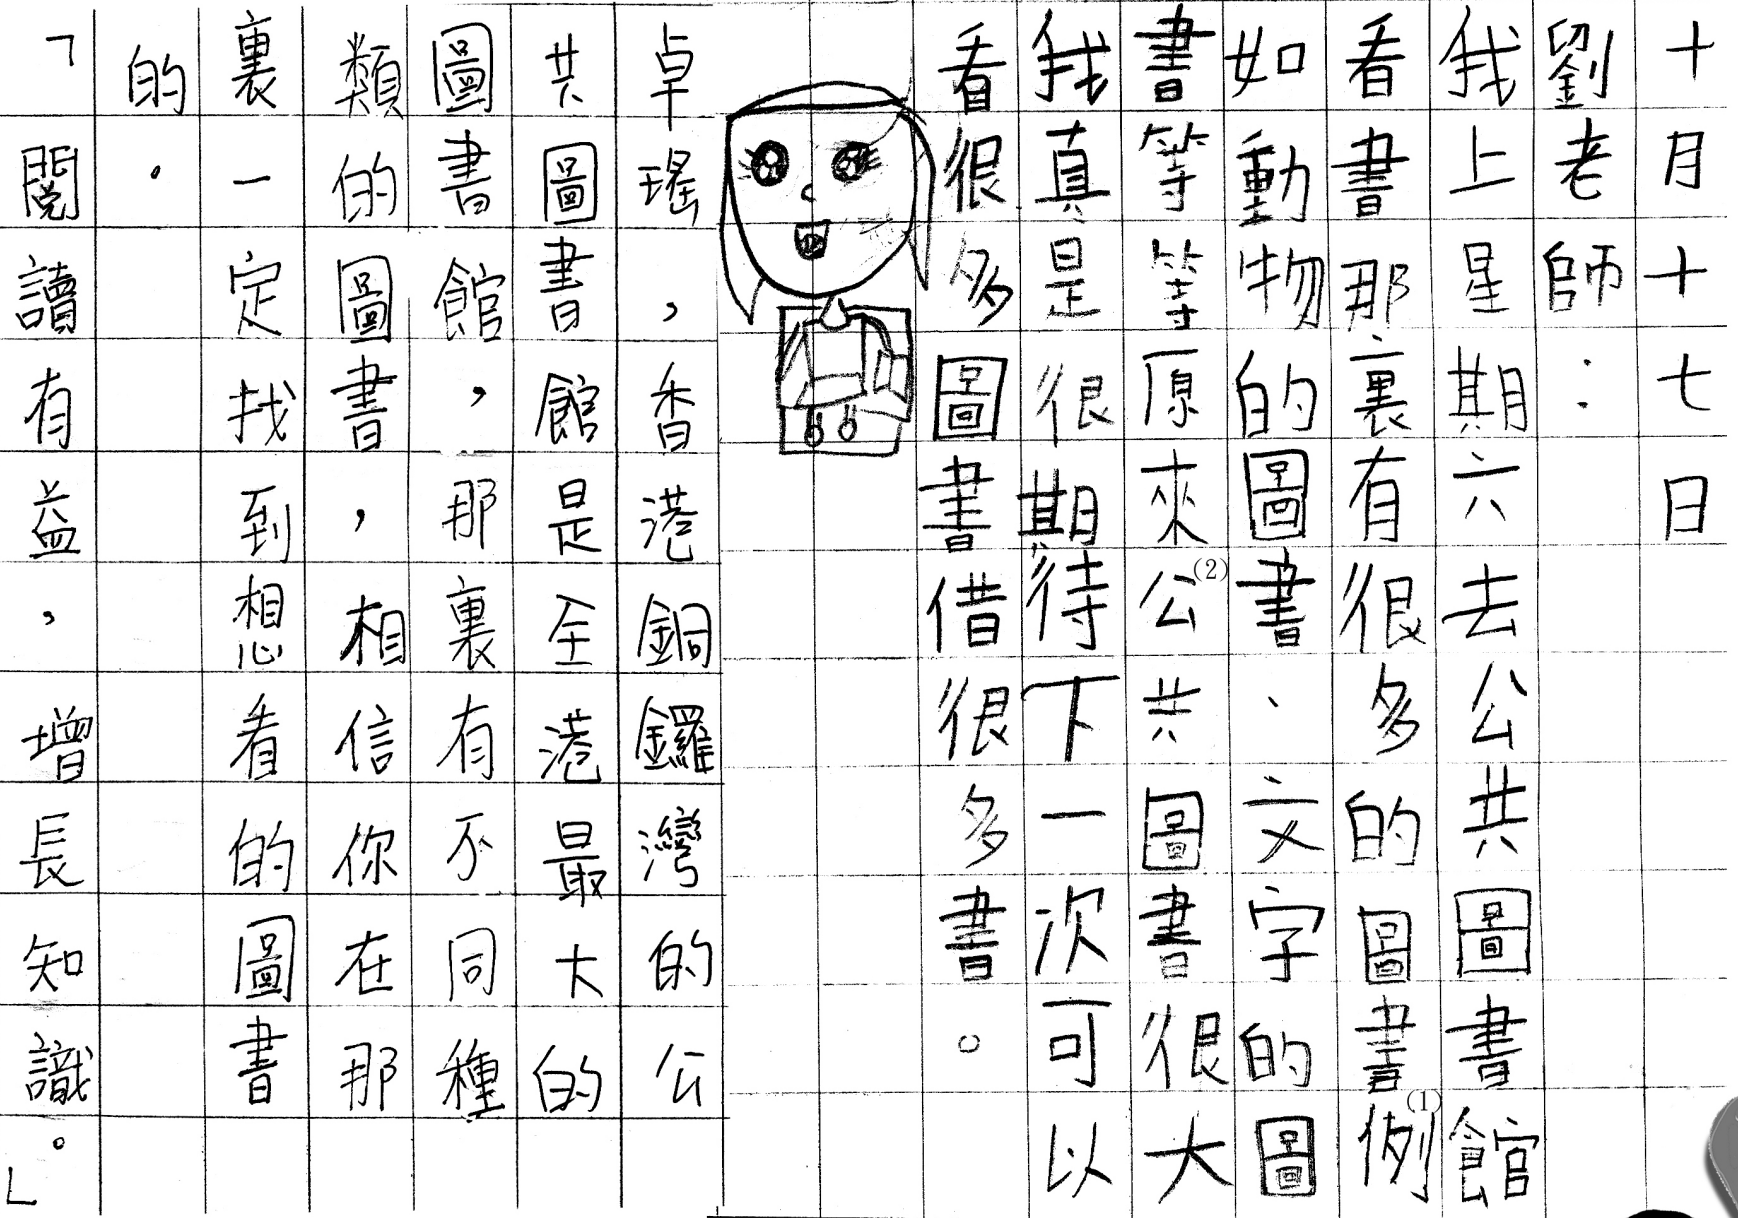 十月十七日
劉老師：
我上星期六去公共圖書館
看書那裏有很多的圖書例(1)
如動物的圖書、文字的圖
書等等原來公(2)共圖書很大
我真是很期待下一次可以
看很多圖書借很多書。
卓瑤，香港銅鑼灣的公
共圖書館是全港最大的
圖書館，那裏有不同種
類的圖書，相信你在那
裏一定找到想看的圖書
的。
「閱讀有益，增長知識。」